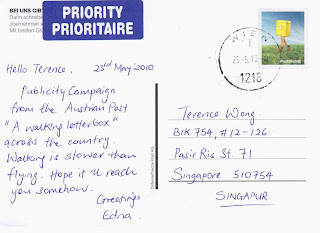 BEI UNS GIB
PRIORITY
PRIORITAIRE
Hello Terence. 23rd May 2010
Publicity Campaign
from the Austrian Post
"A walking letterbox"
across the country.
Walking is slower than
flying. Hope it'll reach
you somehow.
Greetings
Edna.
WIEN
25.-5.10
1218
Terence Wong
Blk 754, #12-126
Pasir Ris St. 71
Singapore 510754
SINGAPUR